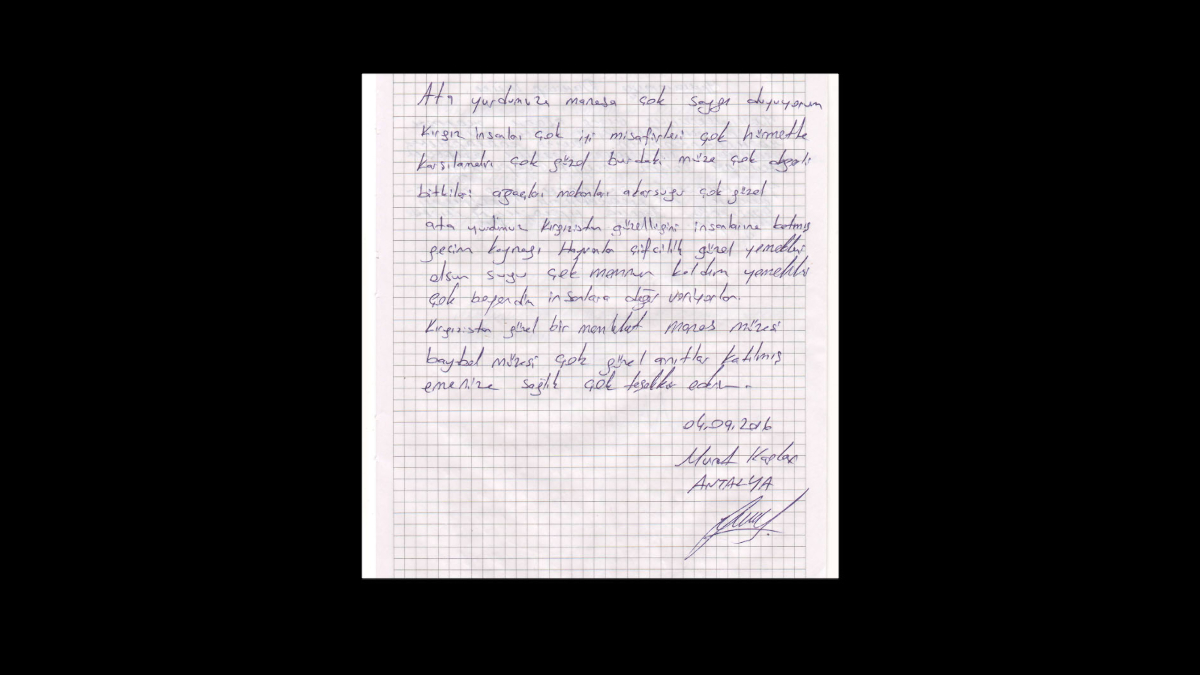 Ata yurdumuza manasa çok saygı duyuyorum
Kırgız insanları çok iyi misafirleri çok hürmetle
karşılamaları çok güzel burdaki müze çok değerli
bitkileri ağaçları akarsuyu çok güzel
ata yurdumuz Kırgızistan güzelliğini insanlarına katmış
geçim kaynağı Hayvanla çifcilik güzel yemekleri
olsun suyu çok memnun kaldım yemekleri
çok beyendim insanlara değer veriyorlar.
Kırgızistan güzel bir memleket manas müzesi
baytbel müzesi çok güzel anıtlar katılmış
emenize sağlık çok teşekkür ederim.
04.09.2016
Murat Kaplan
ANTALYA